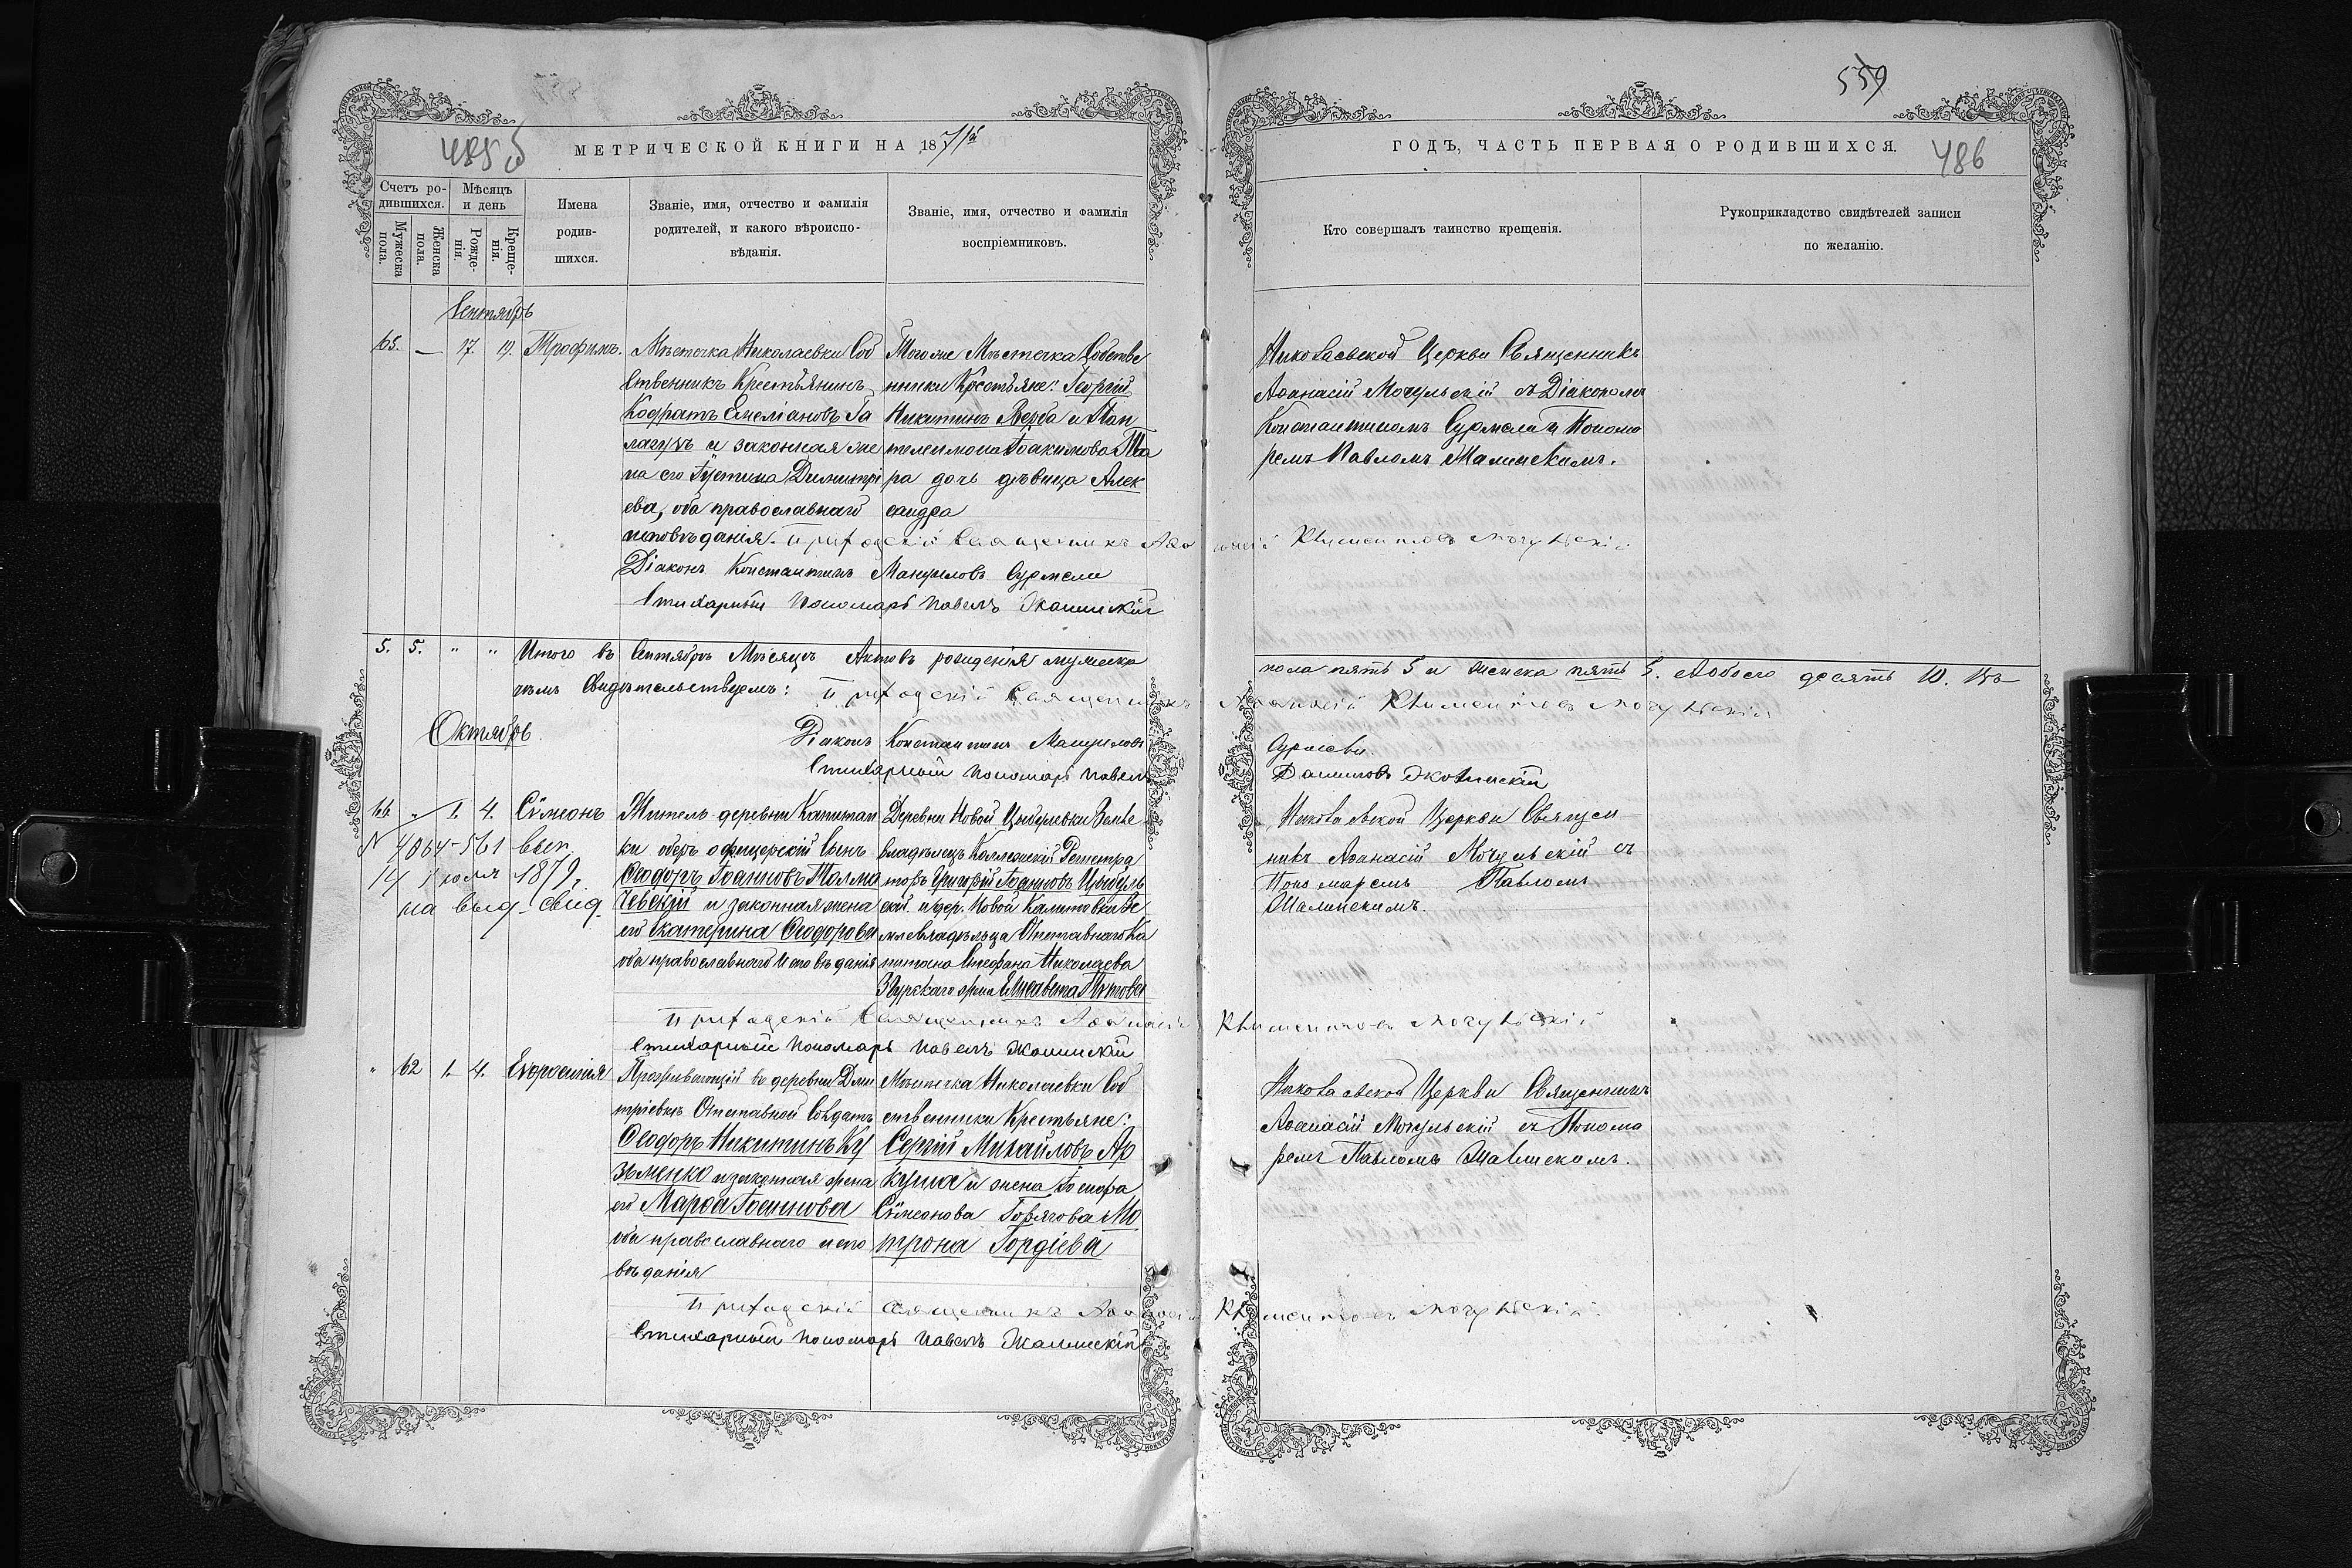 559
485 б
МЕТРИЧЕСКОЙ КНИГИ НА 1871й
ГОДЪ, ЧАСТЬ ПЕРВАЯ О РОДИВШИХСЯ.
486
Счетъ ро-
дившихся.
Мужеска пола.
Женска пола.
Мѣсяцъ
и день
Рожде-
нія.
Креще-
нія.
Имена
родив-
шихся.
Званіе, имя, отчество и фамилія
родителей, и какого вѣроиспо-
вѣданія.
Званіе, имя, отчество и фамилія
воспріемниковъ.
Кто совершалъ таинство крещенія.
Рукоприкладство свидѣтелей записи
по желанію.
Сентябрь
65. — 17. 19. Трофимъ.
Мѣстечка Николаевки Соб
ственникъ Крестьянинъ
Кодратъ Емеліановъ Га
и законная же
на его Іустина Димитрі
ева, оба православнаго
исповѣданія.
Тогоже Мѣстечка Собстве
нники Крестьяне: Георгій
Никитинъ Верба и Пан
телеимона Іоакимова
ра дочь дѣвица Алек
сандра
Николаевской Церкви Священникъ
Аѳанасій Мочульскій съ Діакономъ
Константиномъ Сурмели и Понома
ремъ Павломъ
Приходскій Священникъ Аѳанасій Климентовъ Мочульскій
Діаконъ Константинъ Мануиловъ Сурмели
Стихарный пономарь Павелъ
5. 5. " " Итого въ Сентябрѣ Мѣсяцѣ Актовъ рожденія мужеска
пола пять 5 и женска пять 5. А обоего десять 10. Въ
чемъ свидѣтельствуемъ: Приходскій Священникъ Аѳанасій Климентовъ Мочульскій
Діаконъ Константинъ Мануиловъ
Сурмели
Стихарный пономарь Павелъ
Даниловъ
Октябрь
66. " 1. 4. Сѵмеонъ
N 4064-561 выс.
14 Іюля 1879 г.
на выд. свид.
Житель деревни Капитан
ки оберъ офицерскій сынъ
Ѳеодоръ Іоанновъ Толма
чевскій и законная жена
его Екатерина Ѳеодорова
оба православнаго исповѣданія
Деревни Новой Цыбулевки Земле
владѣлецъ Коллежскій Регистра
торъ Григорій Іоанновъ Цыбуль
скій и дер. Новой Капитовки Зе
млевладѣльца Отставнаго Ка
питана Стефана Николаева
Згурскаго жена Елисавета Титова
Николаевской Церкви Священ
никъ Аѳанасій Мочульскій съ
Пономаремъ Павломъ
Приходскій Священникъ Аѳанасій Климентовъ Мочульскій
Стихарный пономарь Павелъ
" 62 1. 4. Евфросинія
Проживающій въ деревни Дми
тріевкѣ Отставной Солдатъ
Ѳеодоръ Никитинъ Ку
зьменко и законная жена
его Марѳа Іоаннова
оба православнаго испо
вѣданія
Мѣстечка Николаевки Соб
ственники Крестьяне:
Сергій Михайловъ Яр
куша и жена
Сѵмеонова Ма
трона Гордіева
Николаевской Церкви Священникъ
Аѳанасій Мочульскій съ Понома
ремъ Павломъ
Приходскій Священникъ Аѳанасій Климентовъ Мочульскій
Стихарный пономарь Павелъ